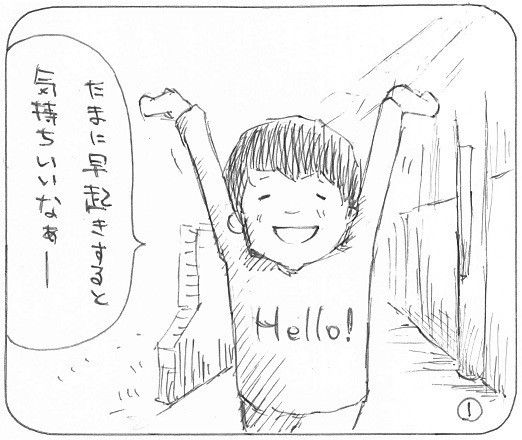 たまに早起きすると
気持ちいいなぁー
Hello!
①